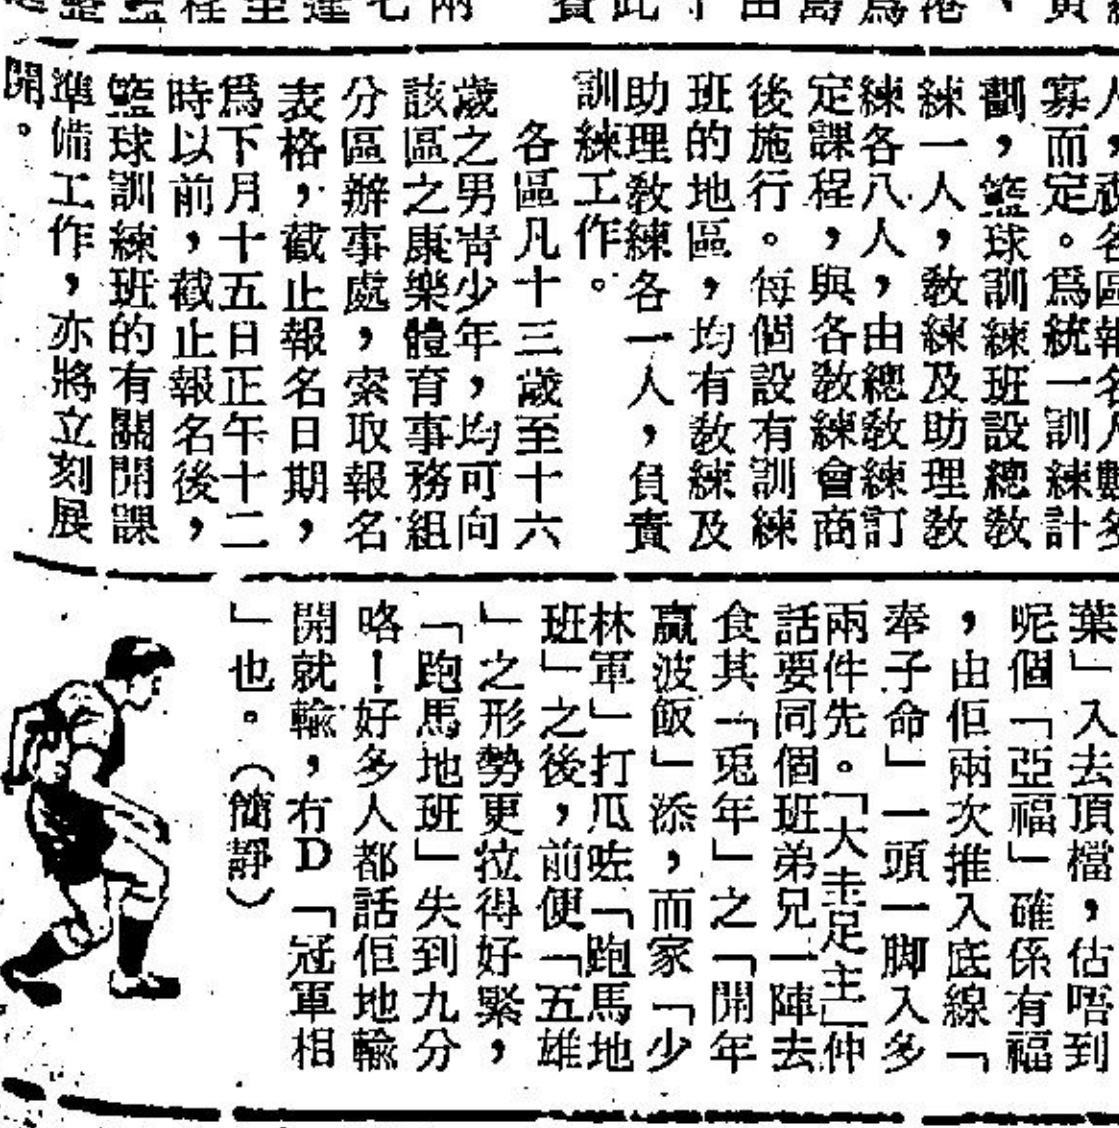 人，視各區報名人數多
寡而定。爲統一訓練計
劃，籃球訓練班設總教
練一人，教練及助理教
練各八人，由總教練訂
定課程，與各教練會商
後施行。每個設有訓練
班的地區，均有教練及
助理教練各一人，負責
訓練工作。
各區凡十三歲至十六
歲之男靑少年，均可向
該區之康樂體育事務組
分區辦事處，索取報名
表格，截止報名日期，
爲下月十五日正午十二
時以前，截止報名後，
籃球訓練班的有關開課
準備工作，亦將立刻展
開。
葉」入去頂檔，估唔到
呢個「亞福」確係有福
，由佢兩次推入底線「
奉子命」一頭一脚入多
兩件先。「大圭足主」仲
話要同個班弟兄一陣去
食其「兎年」之「開年
贏波飯」添，而家「少
林軍」打瓜咗「跑馬地
班」之後，前便「五雄
」之形勢更拉得好緊，
「跑馬地班」失到九分
咯！好多人都話佢地輸
開就輸，冇D「冠軍相
」也。（簡靜）